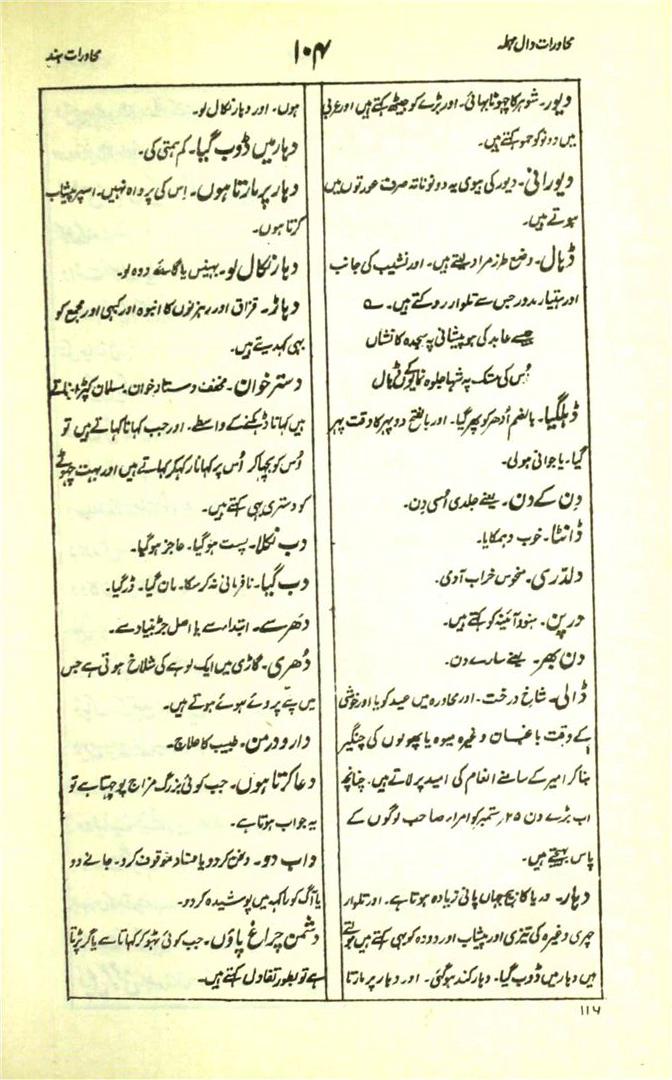 محاورات دال مہملہ
۱۰۴
محاورات ہند
دیور۔ شوہر کا چھوٹا بھائی۔ اور بڑے کو جیٹھ کہتے ہیں اور عربی
میں دونو کو حمو کہتے ہیں۔
دیورانی۔ دیور کی بیوی یہ دونو ناتہ صرف عورتوں میں
ہوتے ہیں۔
ڈہال۔ وضع طرز مراد لیتے ہیں۔ اور نشیب کی جانب
اور ہتیار مدور جس سے تلوار روکتے ہیں۔ ؎
جیسے عابد کی ہو پیشانی پہ سجدہ کا نشاں
اُس کی مستک پہ شہا جلوہ نما یوں ڈہال
ڈہلگیا۔ بالضم اُدھر کو پھر گیا۔ اور بالفتح دوپہر کا وقت پہر
گیا۔ یا جوانی ہولی۔
دِن کے دِن۔ یعنے جلدی اُسی دِن۔
ڈانٹا۔ خوب دہمکایا۔
دلدری۔ منحوس خراب آدمی۔
درپن۔ ہنود آئینہ کو کہتے ہیں۔
دن بھر۔ یعنے سارے دن۔
ڈالی۔ شاخ درخت۔ اور محاورہ میں عید کو یا اور خوشی
کے وقت باغبان وغیرہ میوہ یا پھولوں کی چنگیر
بنا کر امیر کے سامنے انعام کی امید پر لاتے ہیں۔ چنانچہ
اب بڑے دن ۲۵ دسمبر کو امراء صاحب لوگوں کے
پاس بھیجتے ہیں۔
دہار۔ دریا کا بیچ جہاں پانی زیادہ ہوتا ہے۔ اور تلوار
چہری وغیرہ کی تیزی اور پیشاب اور دودہ کو بہی کہتے ہیں بولتے
ہیں دہار میں ڈوب گیا۔ دہار کند ہوگئی۔ اور دہار پر مارتا
ہوں۔ اور دہار نکال لو۔
دہار میں ڈوب گیا۔ کم ہمتی کی۔
دہار پر مارتا ہوں۔ اِس کی پرواہ نہیں۔ اسپر پیشاب
کرتا ہوں۔
دہار نکال لو۔ بہینس یا گائے دوہ لو۔
دہاڑ۔ قزاق اور رہزنوں کا انبوہ اور کبہی اور مجمع کو
بہی کہدیتے ہیں۔
دسترخوان۔ مخفف دستار خوان۔ مسلمان کپڑا بناتے
ہیں کہانا ڈہکنے کے واسطے۔ اور جب کہانا کہاتے ہیں تو
اُس کو بچہا کر اُس پر کہانا رکہکر کہاتے ہیں اور بہت چہوٹے
کو دستری بہی کہتے ہیں۔
دب نکلا۔ پست ہوگیا۔ عاجز ہوگیا۔
دب گیا۔ نافرمانی نہ کر سکا۔ مان گیا۔ ڈر گیا۔
دَھر سے۔ ابتدا سے یا اصل جڑ بنیاد سے۔
دُھری۔ گاڑی میں ایک لوہے کی شلاخ ہوتی ہے جس
میں پہیے پروئے ہوئے ہوتے ہیں۔
دارو درمن۔ طبیب کا علاج۔
دعا کرتا ہوں۔ جب کوئی بزرگ مزاج پوچہتا ہے تو
یہ جواب ہوتا ہے۔
داب دو۔ دفن کردو یا فساد موقوف کرو۔ جانے دو
یا آگ کو راکہہ میں پوشیدہ کر دو۔
دشمن چراغ پاؤں۔ جب کوئی ٹہوکر کہاتا ہے یا گر پڑتا
ہے تو بطور تفاول کہتے ہیں۔
۱۱۶